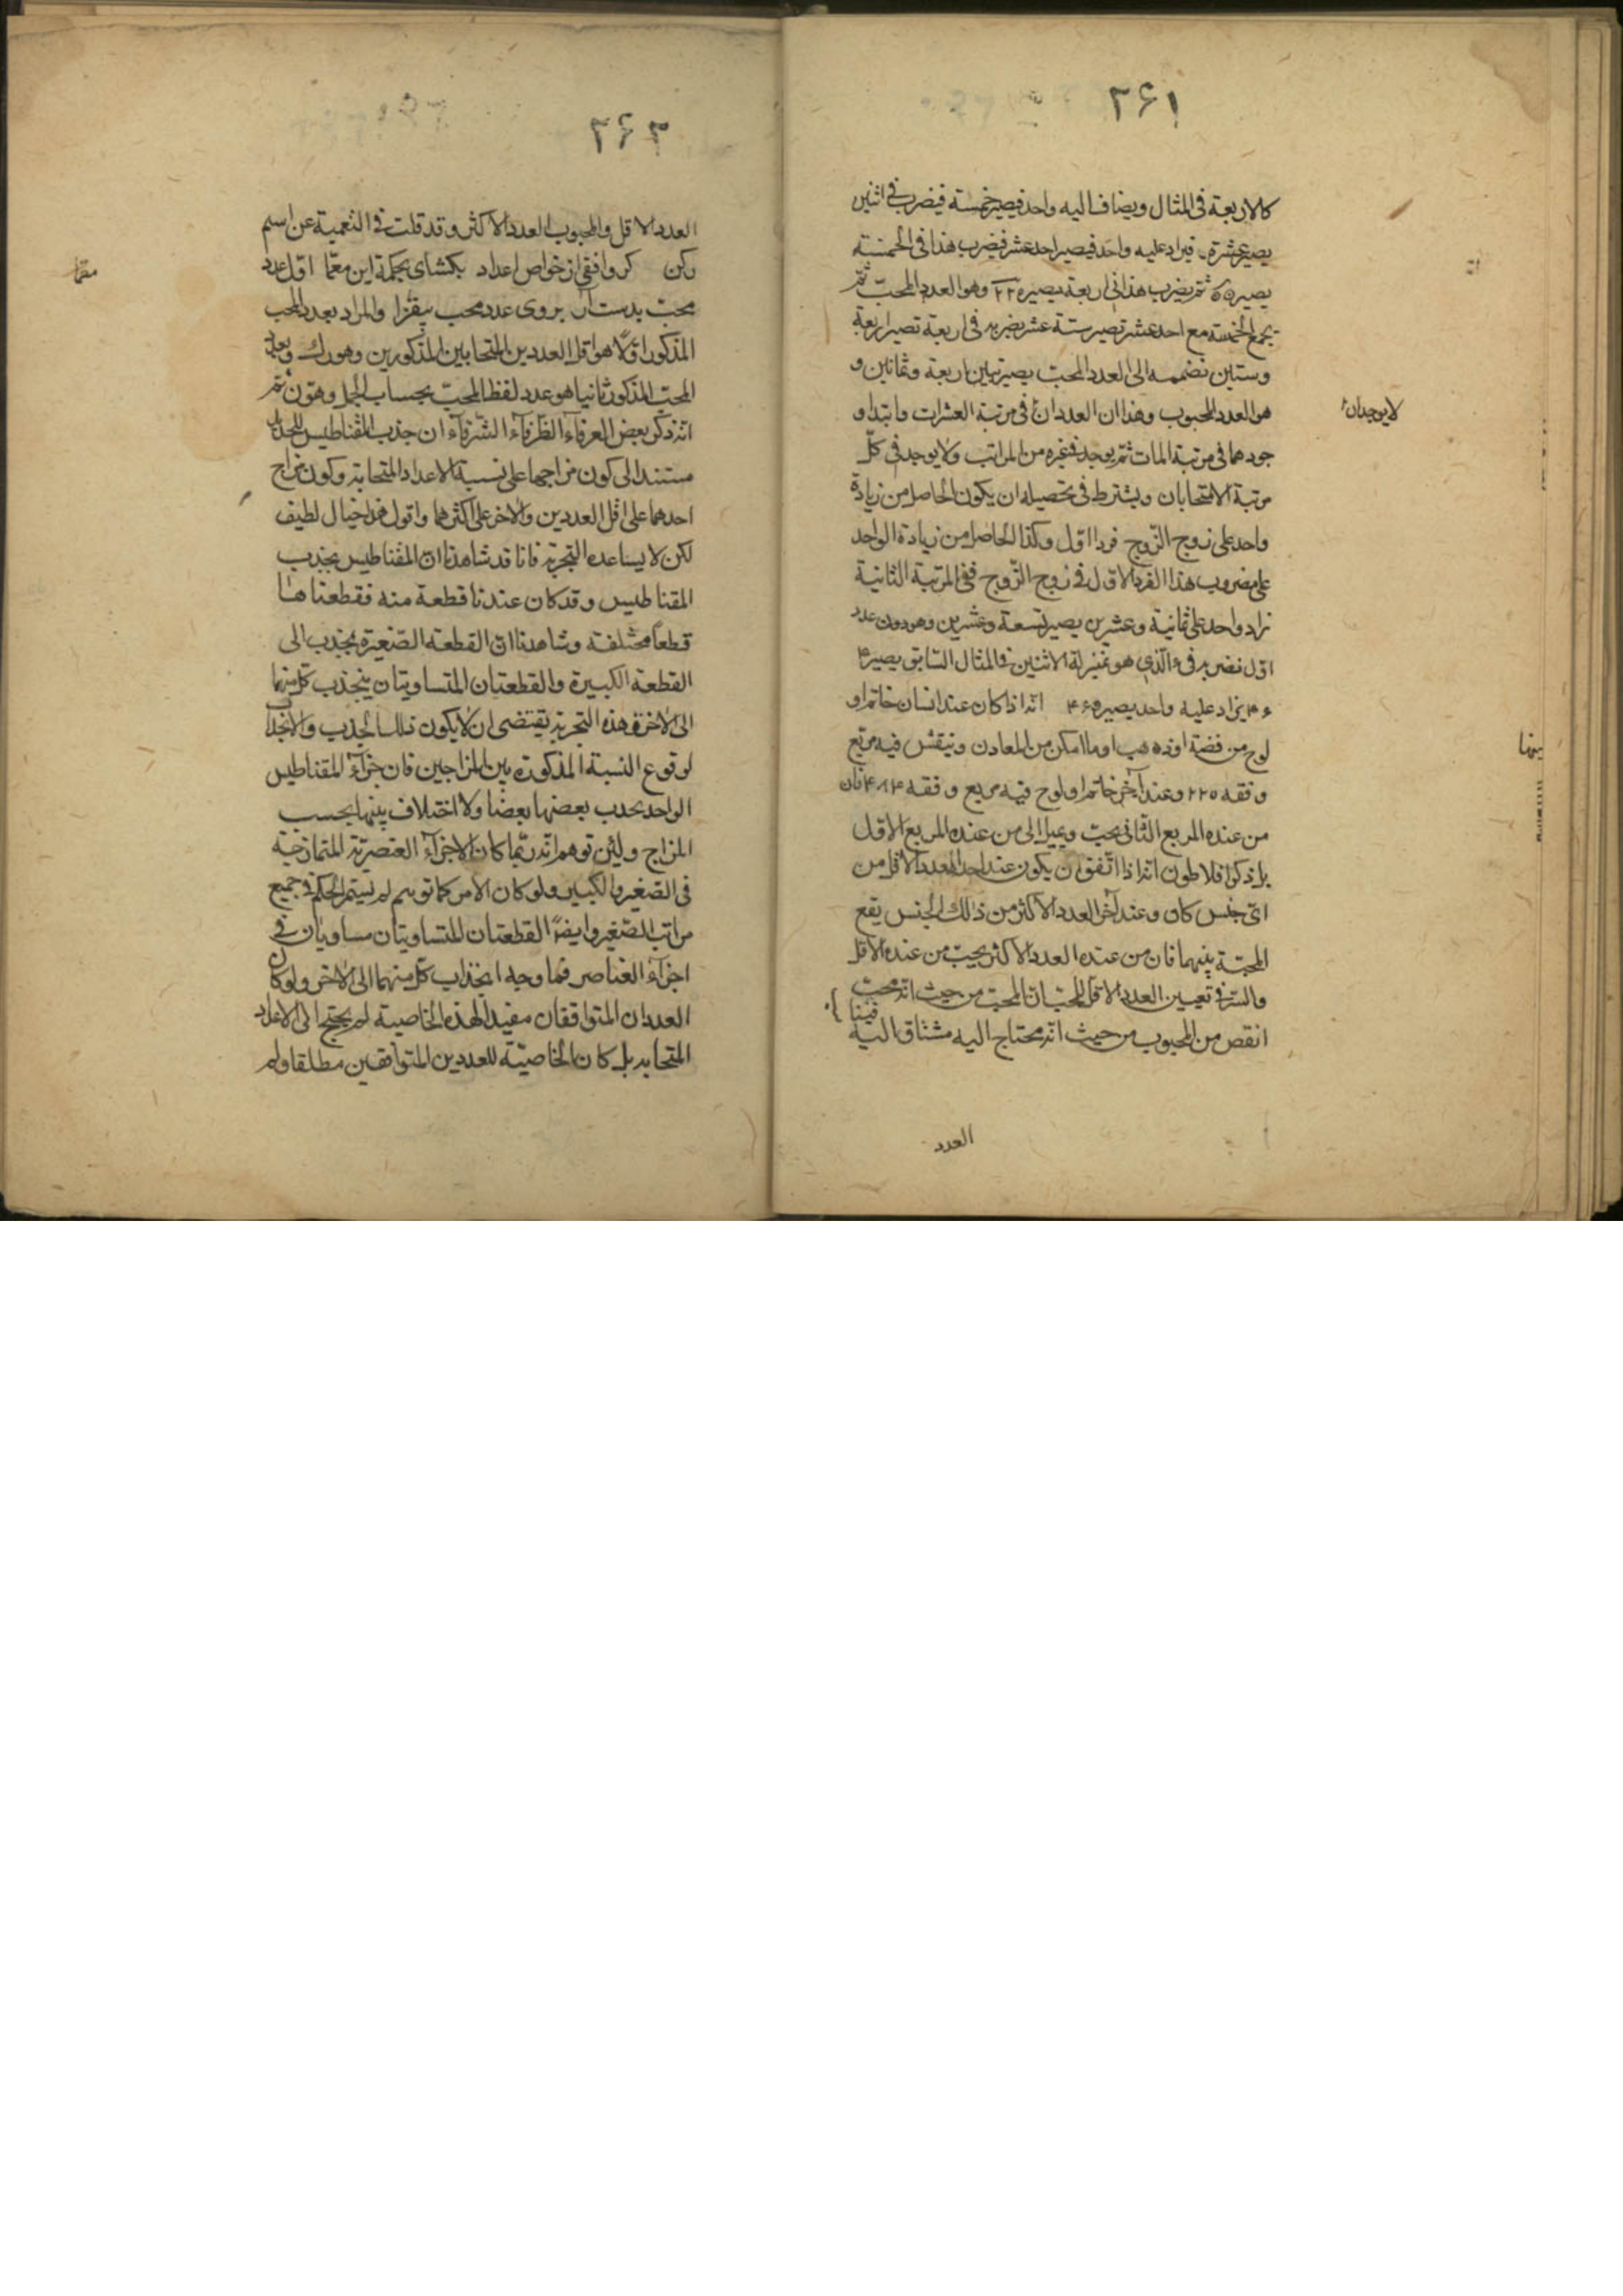 ٢۶١
كالاربعة فى المثال ويضاف اليه واحد فيصير خمسة فيضرب فى اثنين
يصير عشرة فيزاد عليه واحد فيصير احد عشر فيضرب هذا فى الخمسة
يصير ٥٥ ثم يضرب هذا فى اربعة يصير ٢٢٠ وهو العدد المحب ثم
يجمع الخمسة مع احد عشر تصير ستة عشر يضربه فى اربعة تصير اربعة
وستين نضممه الى العدد المحب يصير مأتين اربعة وثمانين و
هو العدد المحبوب وهذان العددان فى مرتبة العشرات وابتداء و
لا يوجدان
جودهما فى مرتبة المات ثم يوجد فى غيره من المراتب ولا يوجد فى كلّ
مرتبة الا متحابان ويشترط فى تحصيله ان يكون الحاصل من زيادة
واحد على زوج الزّوج فردا اوّل وكذا الحاصل من زيادة الواحد
على مضروب هذا الفرد الاوّل فى زوج الزّوج ففى المرتبة الثانية
نزاد واحد على ثمانية وعشرين يصير تسعة وعشرين وهو دون عدد
اوّل نضربه فى الّذى هو بمنزلة الاثنين فى المثال السّابق يصير
يزاد عليه واحد يصير انه اذا كان عند انسان خاتم او
لوح من فضة او ذهب او ما امكن من المعادن وينقش فيه مربّع
بينهما
وفقه ٢٢٥ وعند آخر خاتم او لوح فيه مربع وفقه فان
من عنده المربع الثّانى يحبّ ويميل الى من عنده المربع الاوّل
بل ذكر افلاطون انه اذا اتّفق ان يكون عند احد العدد الاقل من
اىّ جنس كان وعند آخر العدد الاكثر من ذلك الجنس يقع
المحبّة بينهما فان من عنده العدد الاكثر يحبّ من عنده الاقل
والسّر فى تعيين العدد الاقل للمحبّ ان المحبّ من حيث انه محبّ
انقص من المحبوب من حيث انه محتاج اليه مشتاق اليه
العدد
٢۶٢
العدد الاقل والمحبوب العدد الاكثر وقد قلت فى التعمية عن اسم
ركن كر وافقى از خواص اعداد بكشاى بحكمة اين معمّا اوّل عدد
معما
محبّ بدست آر بروى عدد محب بيفزا والمراد بعدد المحب
المذكور اوّلا هو اقل العددين المتحابين المذكورين وهو رك وبعدد
المحبّ المذكور ثانيا هو عدد لفظ المحبّ بحساب الجمل وهو ن ثم
انه ذكر بعض العرفاء الظّرفاء الشّرفاء ان جذب المقناطيس للحديد
مستند الى كون مزاجهما على نسبة الاعداد المتحابة وكون مزاج
احدهما على اقل العددين والآخر على اكثرهما واقول هذا خيال لطيف
لكن لا يساعده التجربة فانا قد شاهدنا ان المقناطيس يجذب
المقناطيس وقد كان عندنا قطعة منه فقطعناها
قطعاً مختلفة وشاهدنا انّ القطعة الصّغيرة يجذب الى
القطعة الكبيرة والقطعتان المتساويتان ينجذب كل منهما
الى الاخرى وهذه التجربة يقتضى ان لا يكون ذلك الجذب والانجذاب
لوقوع النسبة المذكورة بين المزاجين فان جزاء المقناطيس
الواحد يجذب بعضها بعضا ولا اختلاف بينها بحسب
المزاج ولئن توهم انه ربّما كان الاجزاء العنصريّة المتمازجة
فى الصّغير والكبير ولو كان الامر كما توهم لم يستمر الحكم فى جميع
مراتب الصّغير وايضاً القطعتان المتساويتان مساويان فى
اجزاء العناصر فما وجه انجذاب كل منهما الى الاخر ولو كان
العددان المتوافقان مفيدا لهذه الخاصية لم يحتج الى الاعداد
المتحابه بل كان الخاصيّة للعددين المتوافقين مطلقا ولم